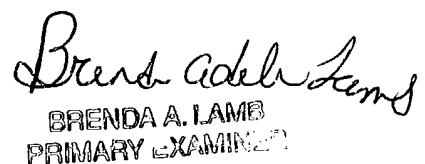 Brenda Adele Lamb
BRENDA A. LAMB
PRIMARY EXAMINER